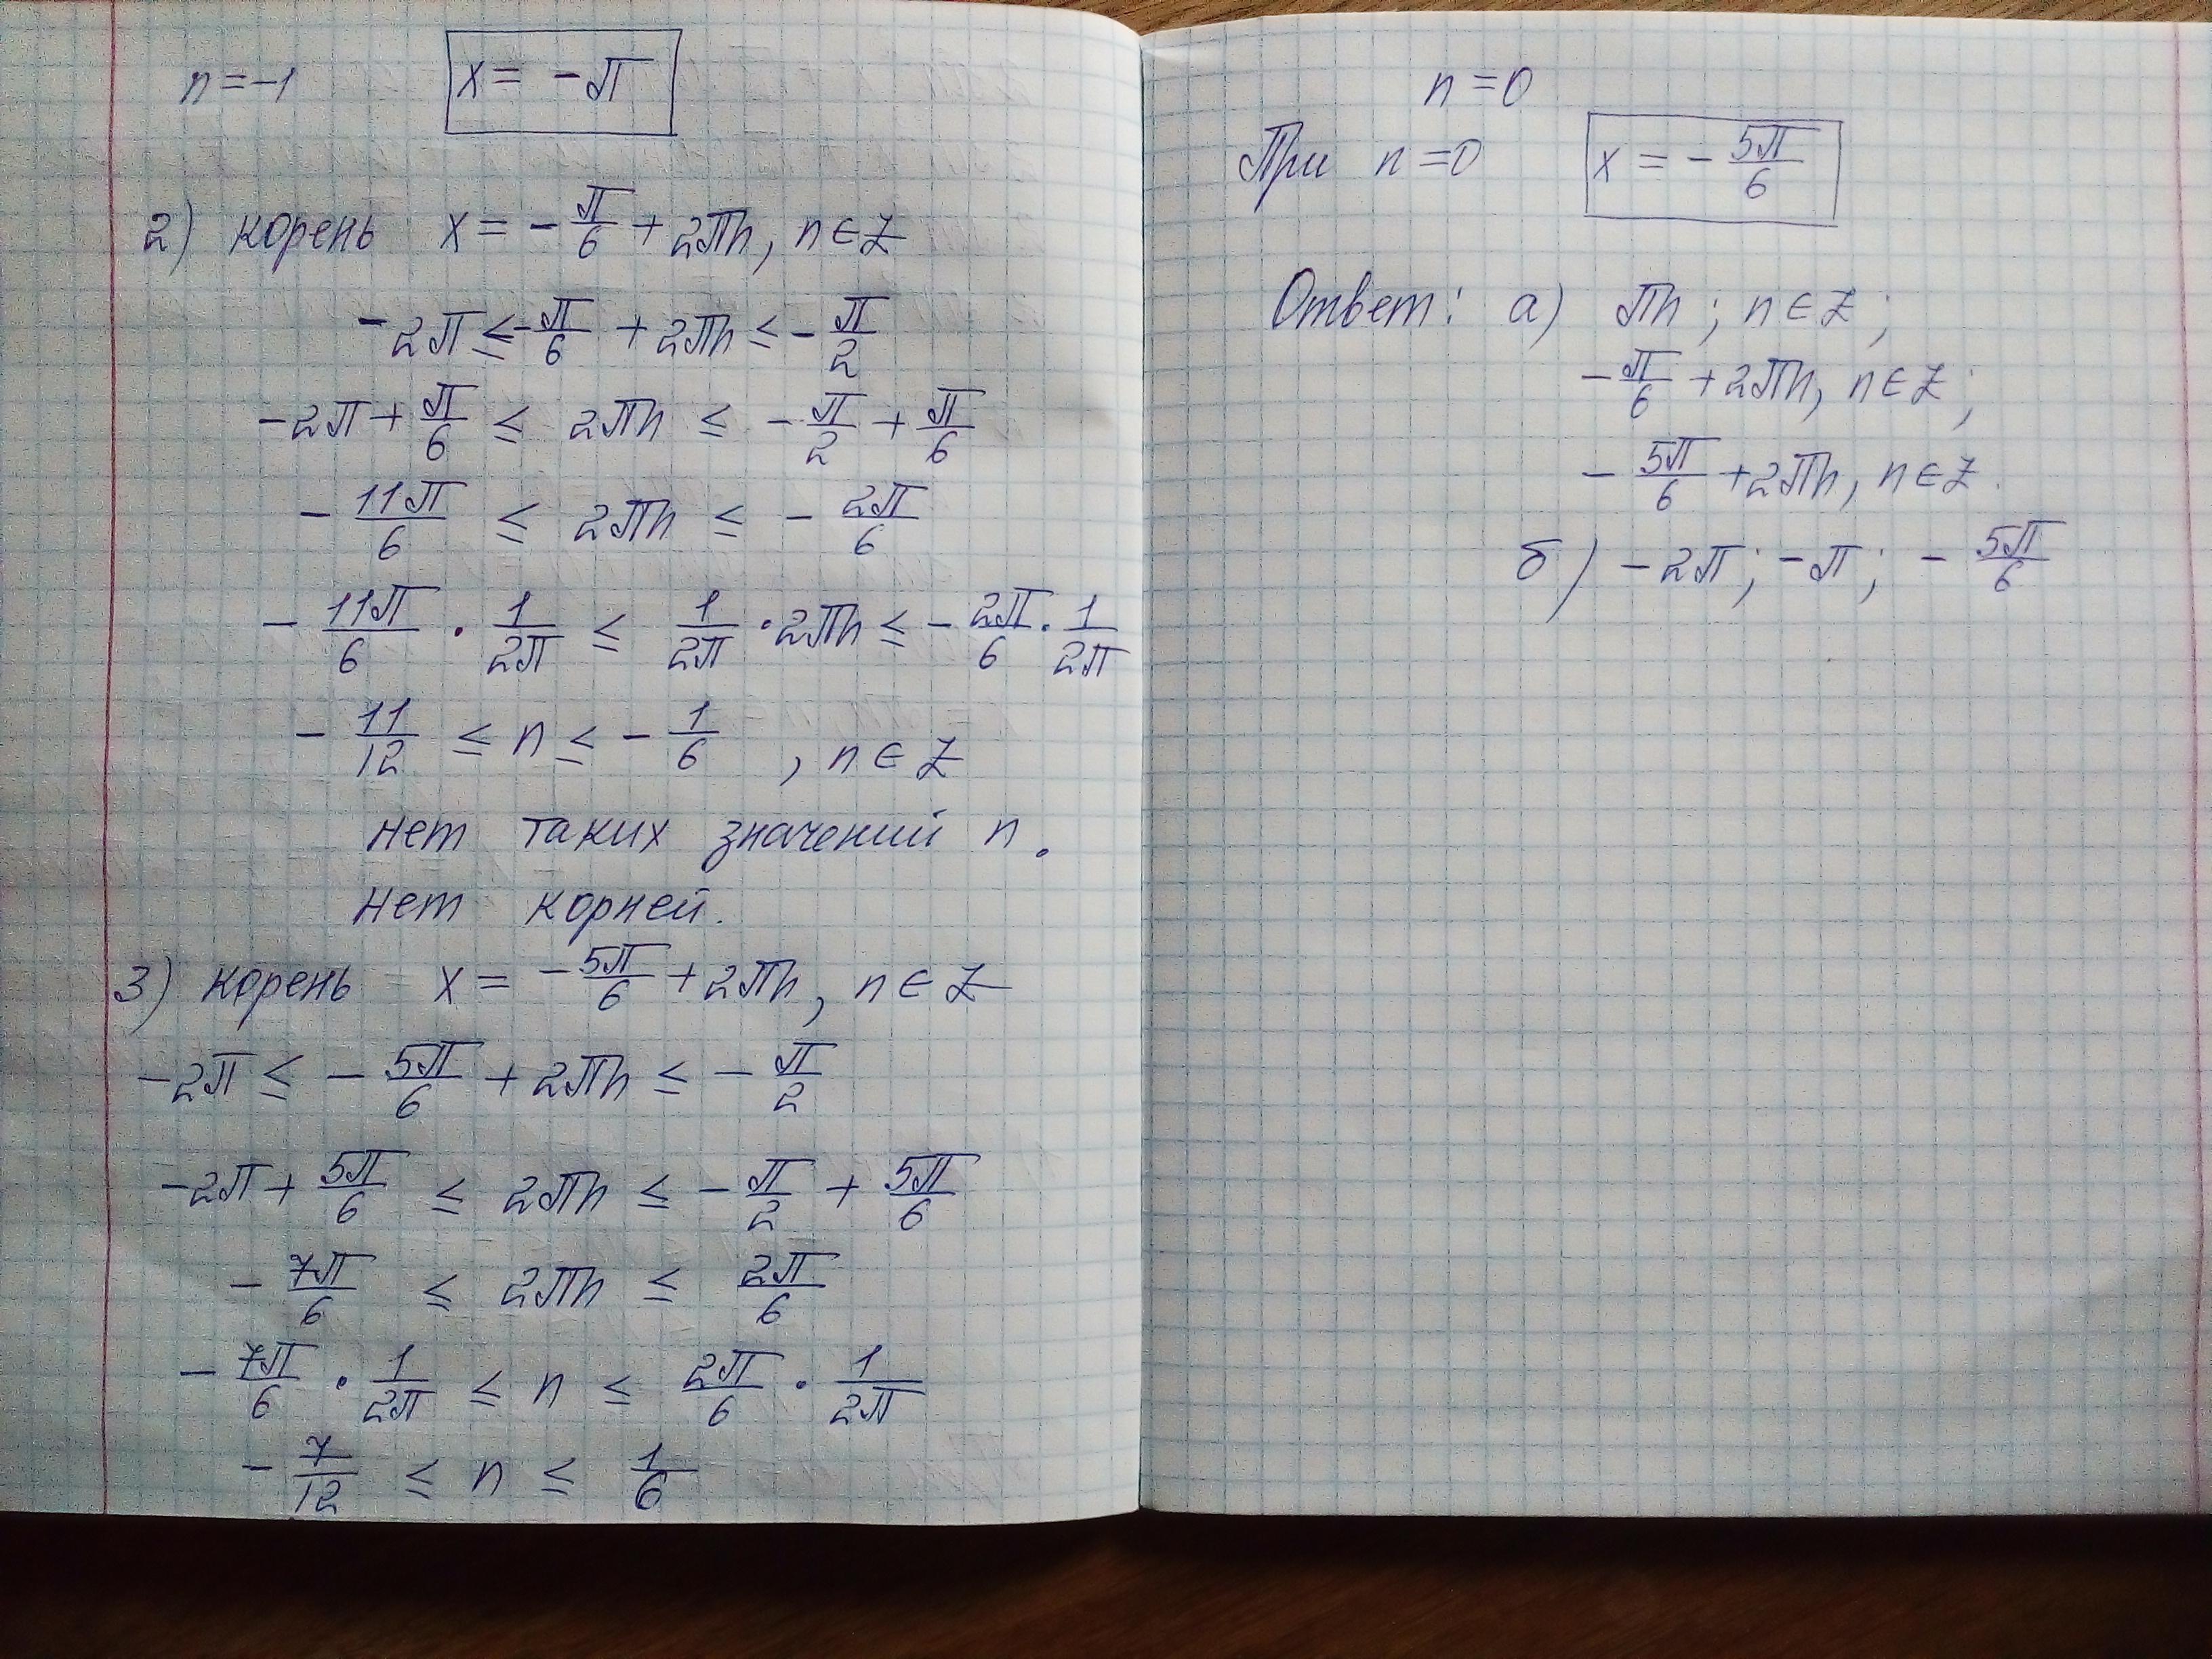 n = -1   x = -π
2) корень x = -π/6 + 2πn, n ∈ Z
-2π ≤ -π/6 + 2πn ≤ -π/2
-2π + π/6 ≤ 2πn ≤ -π/2 + π/6
-11π/6 ≤ 2πn ≤ -2π/6
-11π/6 · 1/2π ≤ 1/2π · 2πn ≤ -2π/6 · 1/2π
-11/12 ≤ n ≤ -1/6 , n ∈ Z
нет таких значений n.
нет корней.
3) корень x = -5π/6 + 2πn, n ∈ Z
-2π ≤ -5π/6 + 2πn ≤ -π/2
-2π + 5π/6 ≤ 2πn ≤ -π/2 + 5π/6
-7π/6 ≤ 2πn ≤ 2π/6
-7π/6 · 1/2π ≤ n ≤ 2π/6 · 1/2π
-7/12 ≤ n ≤ 1/6
n = 0
При n = 0   x = -5π/6
Ответ: а) πn; n ∈ Z;
-π/6 + 2πn, n ∈ Z;
-5π/6 + 2πn, n ∈ Z.
б) -2π; -π; -5π/6